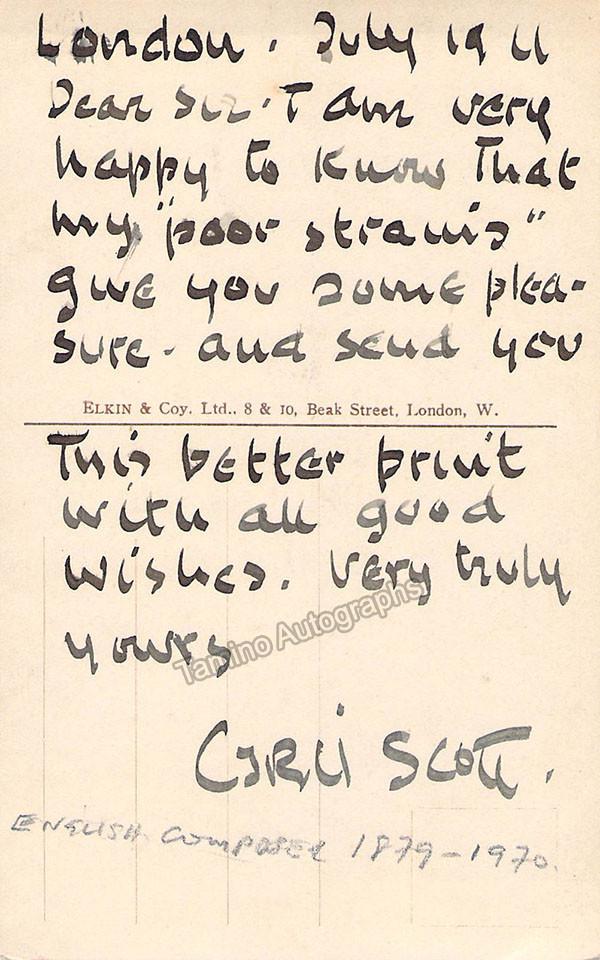 London. July 1911
Dear Sir. I am very
happy to know that
my "poor strains"
give you some plea-
sure. and send you
ELKIN & Coy. Ltd., 8 & 10, Beak Street, London, W.
This better print
with all good
wishes. Very truly
yours
Tamino Autographs
Cyril Scott.
ENGLISH COMPOSER 1879-1970.